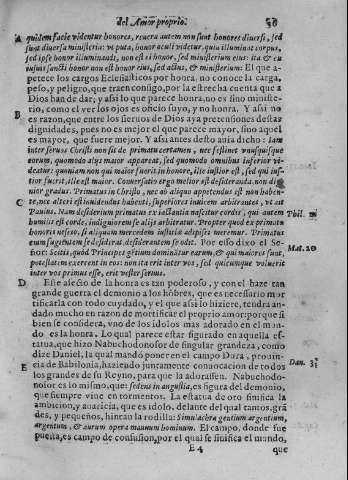 del Amor proprio.
A quidem facie videntur honores, reuera autem non sunt honores diuersi, sed
sunt diuersa ministeria: vt puta, honor oculi videtur, quia illuminat corpus,
sed ipse honor illuminandi, non est ei honor, sed ministerium eius: ita & cu
iusuis sancti honor non est honor eius, sed actus, & ministerium: El que a-
petece los cargos Eclesiasticos por honra, no conoce la carga,
peso, y peligro, que traen consigo, por la estrecha cuenta que a
Dios han de dar; y assi lo que parece honra, no es sino ministe-
rio, como el ver los ojos es oficio suyo, y no honra. Y asi no
B es razon, que entre los sieruos de Dios aya pretensiones destas
dignidades, pues no es mejor el que parece mayor, sino aquel
es mayor, que fuere mejor. Y asi antes desto auia dicho: Iam
inter seruos Christi non sit de primatu certamen, nec festinet vnusquisque
eorum, quomodo alijs maior appareat, sed quomodo omnibus inferior vi-
deatur: quoniam non qui maior fuerit in honore, ille iustior est, sed qui ius-
tior fuerit, ille est maior. Conuersatio ergo melior est desideranda, non dig
nior gradus. Primatus in Christo, nec ab aliquo appetendus est non haben-
C te, nec alteri est inuidendus habenti, superiores inuicem arbitrantes, vt ait
Paulus. Nam desiderium primatus ex iactantia nascitur cordis, qui autem
humilis est corde, indigniorem se alijs arbitratur. Propter quod ex primatu
honoris nescio, si aliquam mercedem iustitiæ adipisci meremur. Primatus
eum fugientem se desiderat, desiderantem se odit. Por esso dixo el Se-
ñor: Scitis, quod Principes gētium dominātur earum, & qui maiores sunt,
potestatem exercent in eos: non ita erit inter vos, sed quicumque voluerit
inter vos primus esse, erit vester seruus.
Phil.
Mat. 20
D Este afecto de la honra es tan poderoso, y con el haze tan
grande guerra el demonio a los hōbres, que es necessario mor
tificarla con todo cuydado, y el que assi lo hiziere, tendra an-
dado mucho en razon de mortificar el proprio amor: porque si
bien se considera, vno de los idolos mas adorado en el mun-
do es la honra. Lo qual parece estar figurado en aquella es-
tatua, que hizo Nabuchodonosor de singular grandeza, como
dize Daniel, la qual mandó poner en el campo Dura, prouin-
E cia de Babilonia, haziendo juntamente conuocacion de todos
los grandes de su Reyno, para que la adorassen. Nabuchodo-
nosor es lo mismo, que: sedens in angustia, es figura del demonio,
que siempre viue en tormentos. La estatua de oro sinifica la
ambicion, y auaricia, que es idolo, delante del qual tantos, grā-
des, y pequeños, hincan la rodilla: Simulachra gentium argentum,
argentum, & aurum opera manuum hominum. El campo, donde fue
puesta, es campo de confusion, por el qual se sinifica el mundo,
Dan. 3.
E 4
que